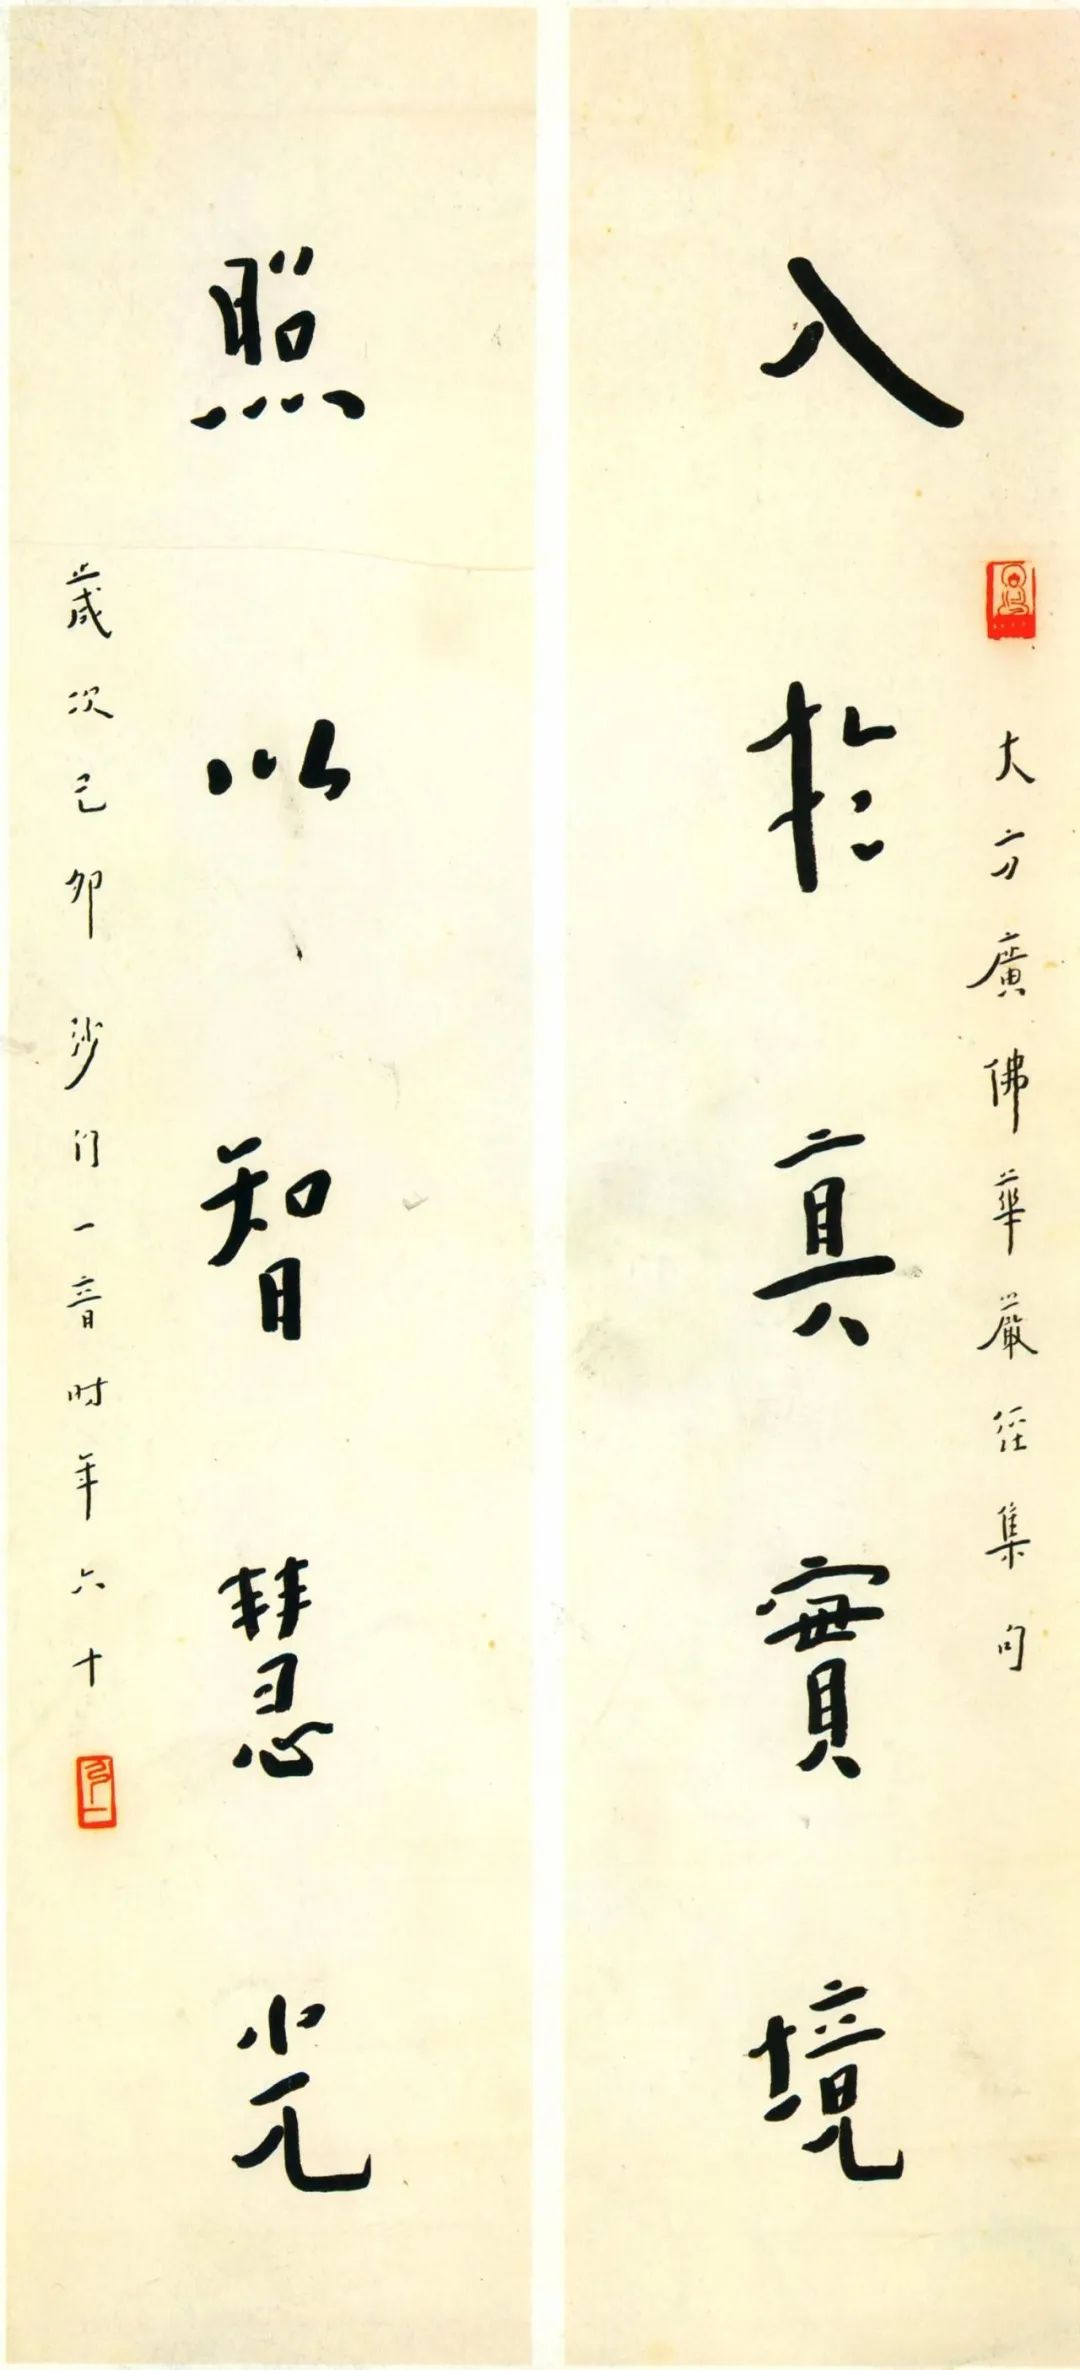 入於真實境
大方廣佛華嚴经集句
照以智慧光
歲次己卯沙门一音时年六十
弘一